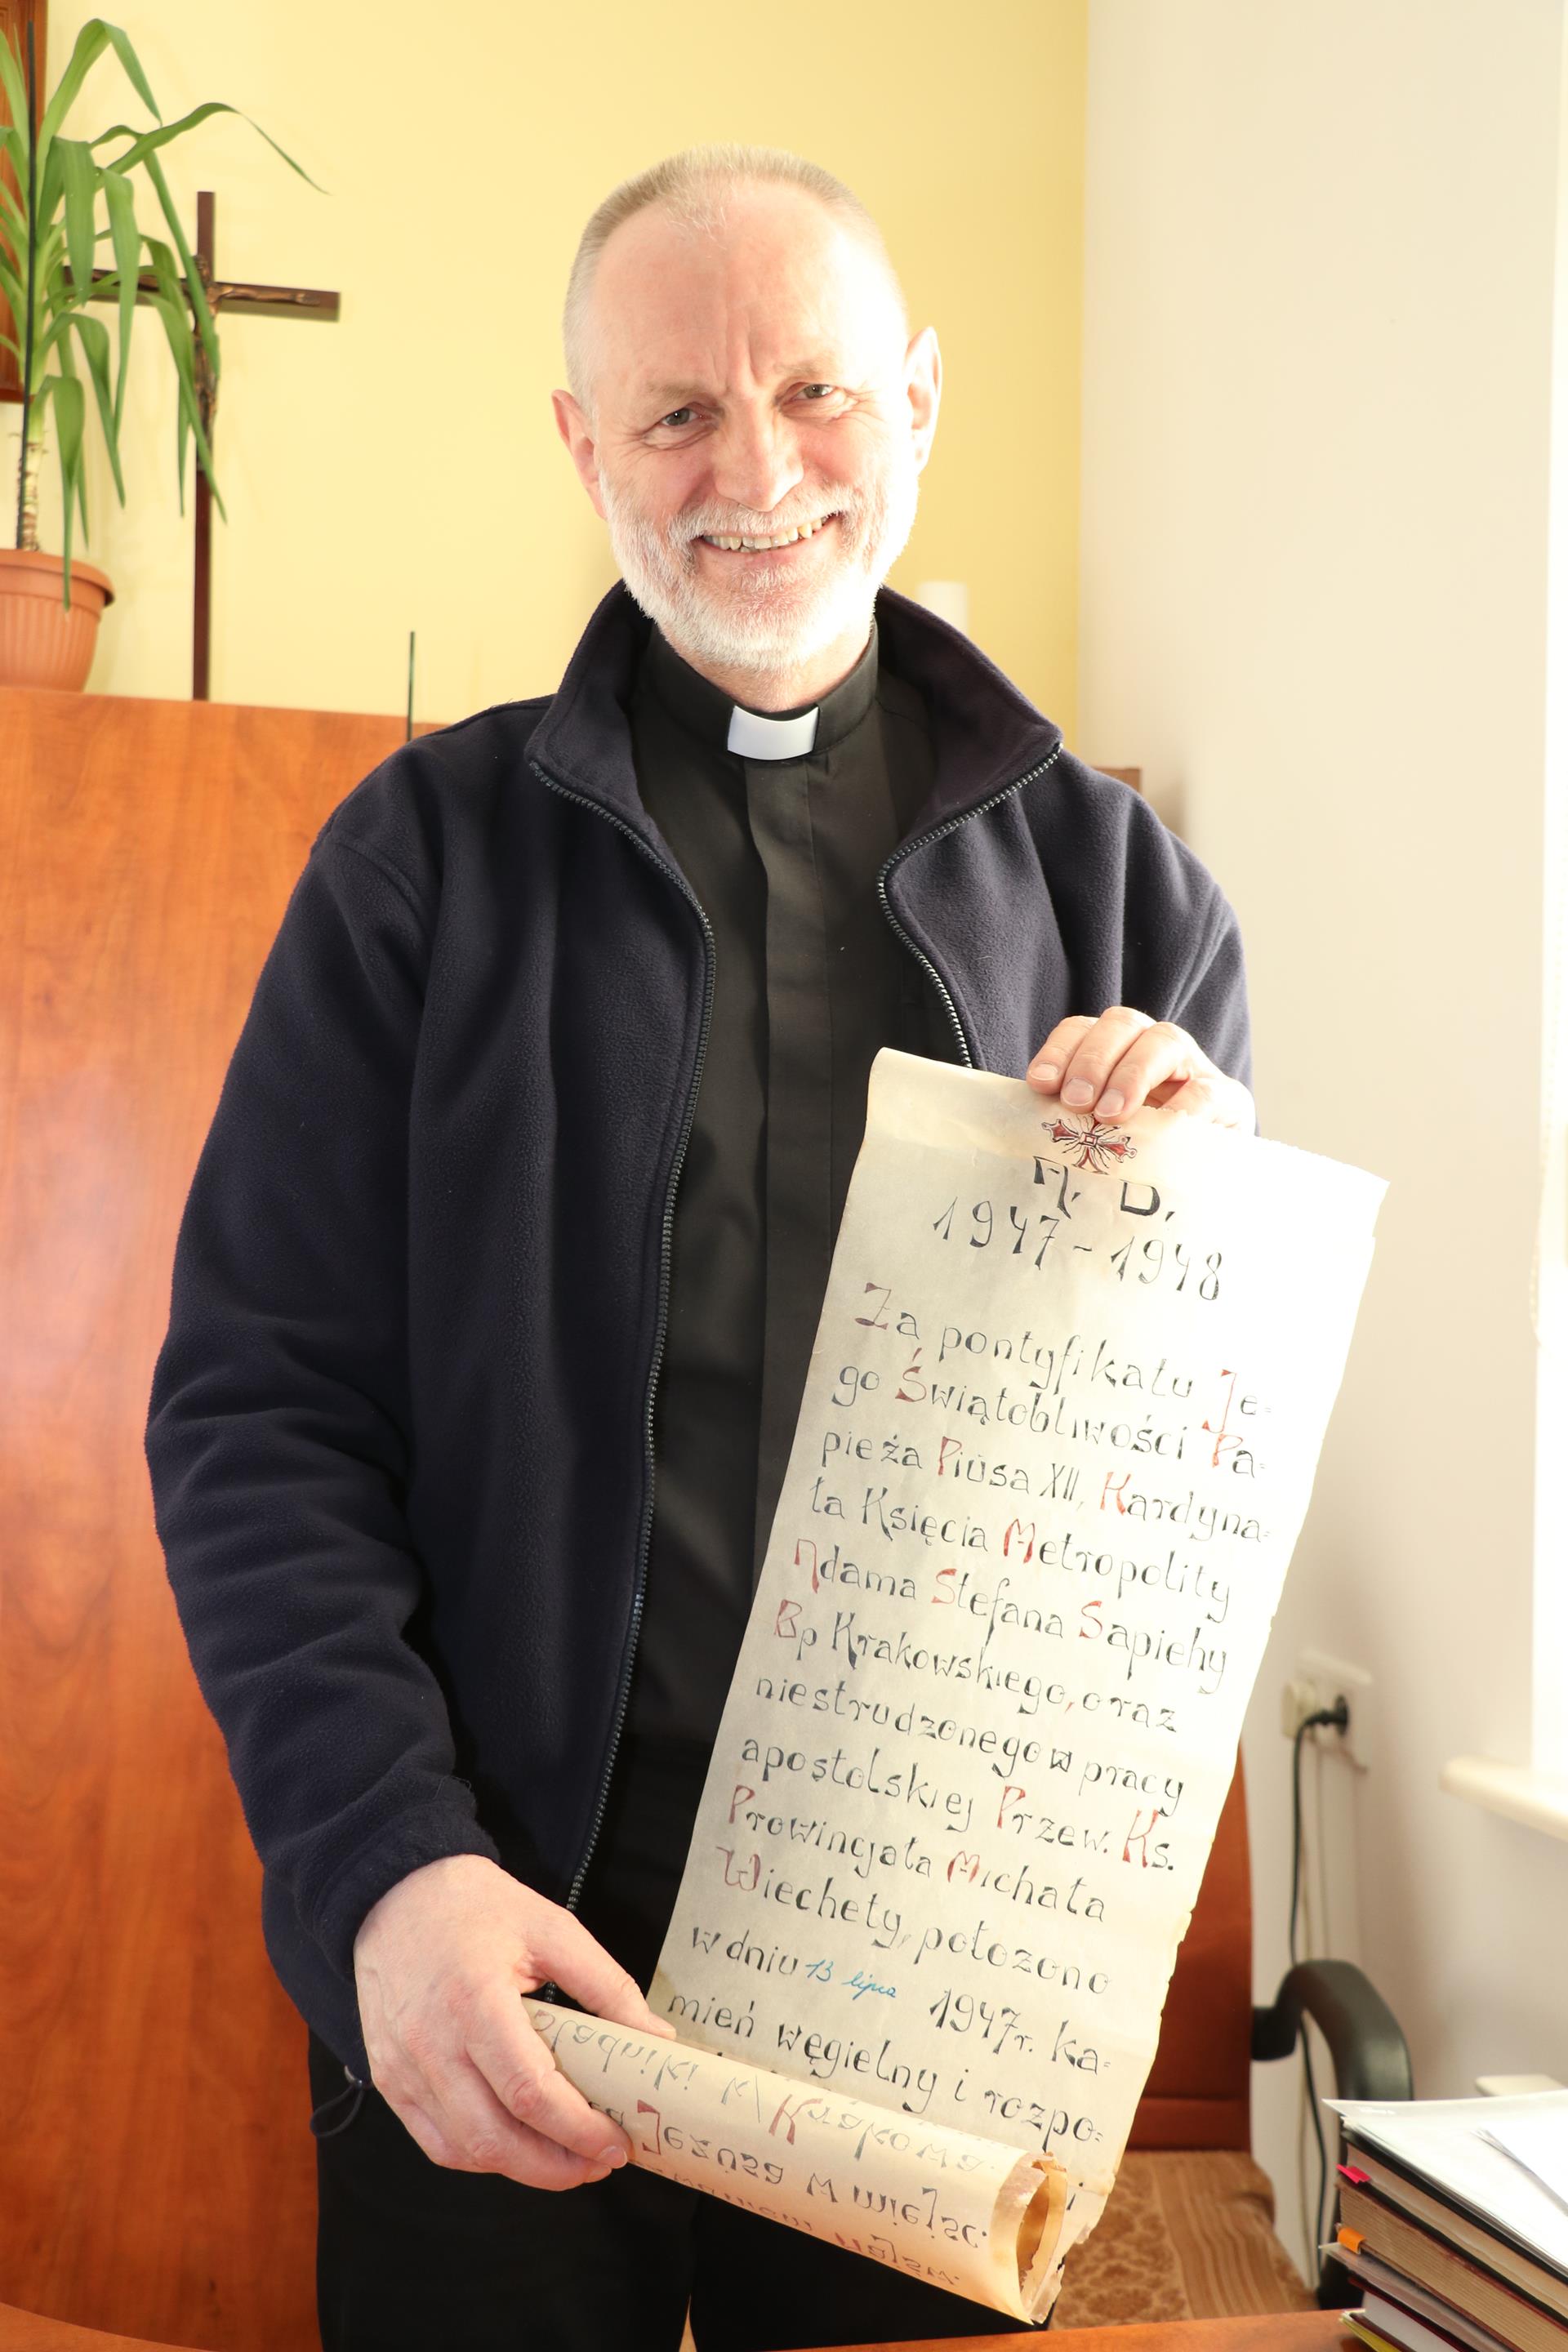 A. D.
1947-1948
Za pontyfikatu Je=
go Świątobliwości Pa=
pieża Piusa XII, Kardyna=
ła Księcia Metropolity
Adama Stefana Sapiehy
Bp Krakowskiego, oraz
niestrudzonego w pracy
apostolskiej Przew. Ks.
Prowincjała Michała
Wiechety, położono
w dniu 13 lipca 1947r. ka=
mień węgielny i rozpo=
i
k/Krakowa.
Jezusa w miejsc.
najśw.